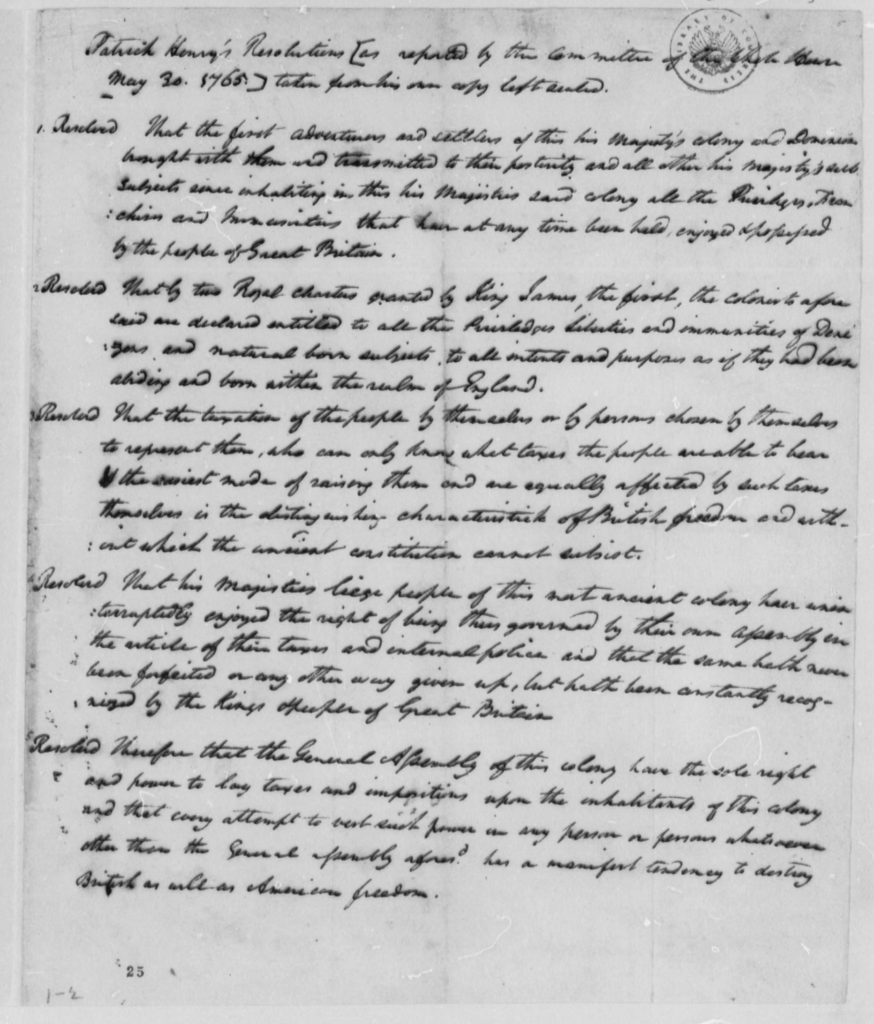 Patrick Henry's Resolutions [as reported by the Committee of the whole House
May 30. 1765.] taken from his own copy left sealed.
1. Resolved That the first adventurers and settlers of this his Majesty's colony and Dominion
brought with them and transmitted to their posterity and all other his Majesty's sub
subjects since inhabiting in this his Majisties said colony all the Priviledges, Fran
:chises and Immunities that have at any time been held, enjoyed & possessed
by the people of Great Britain.
2 Resolved That by two Royal charters granted by King James, the first, the colonists afore
said are declared entitled to all the Priviledges Liberties and immunities of Deni
:zens and natural born subjects, to all intents and purposes as if they had been
abiding and born within the realm of England.
3 Resolved That the taxation of the people by themselves or by persons chosen by themselves
to represent them, who can only know what taxes the people are able to bear
& the easiest mode of raising them and are equally affected by such taxes
themselves is the distinguishing characteristick of British freedom and with-
:out which the ancient constitution cannot subsist.
4 Resolved That his Majisties liege people of this most ancient colony have unin
:terruptedly enjoyed the right of being thus governed by their own Assembly in
the article of their taxes and internal police and that the same hath never
been forfeited or any other way given up, but hath been constantly recog-
nized by the Kings & people of Great Britain
5 Resolved Therefore that the General Assembly of this colony have the sole right
and power to lay taxes and impositions upon the inhabitants of this colony
and that every attempt to vest such power in any person or persons whatsoever
other than the General Assembly afores.d has a manifest tendency to destroy
British as well as American freedom.
25
1-2